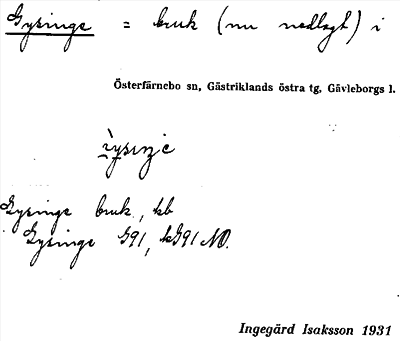 Gysinge = bruk (nu nedlagt) i
Österfärnebo sn, Gästriklands östra tg, Gävleborgs l.
Gysinge bruk, kb
Gysinge G91, kG91 NO.
Ingegärd Isaksson 1931